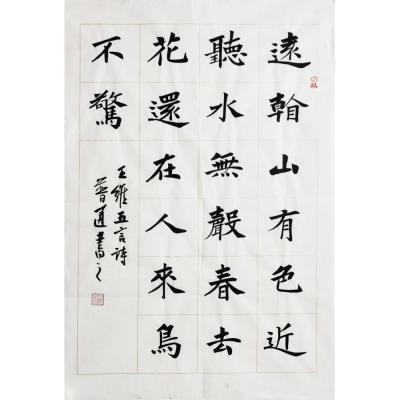 遠看山有色近
聽水無聲春去
花還在人來鳥
不驚
王維五言詩
書之